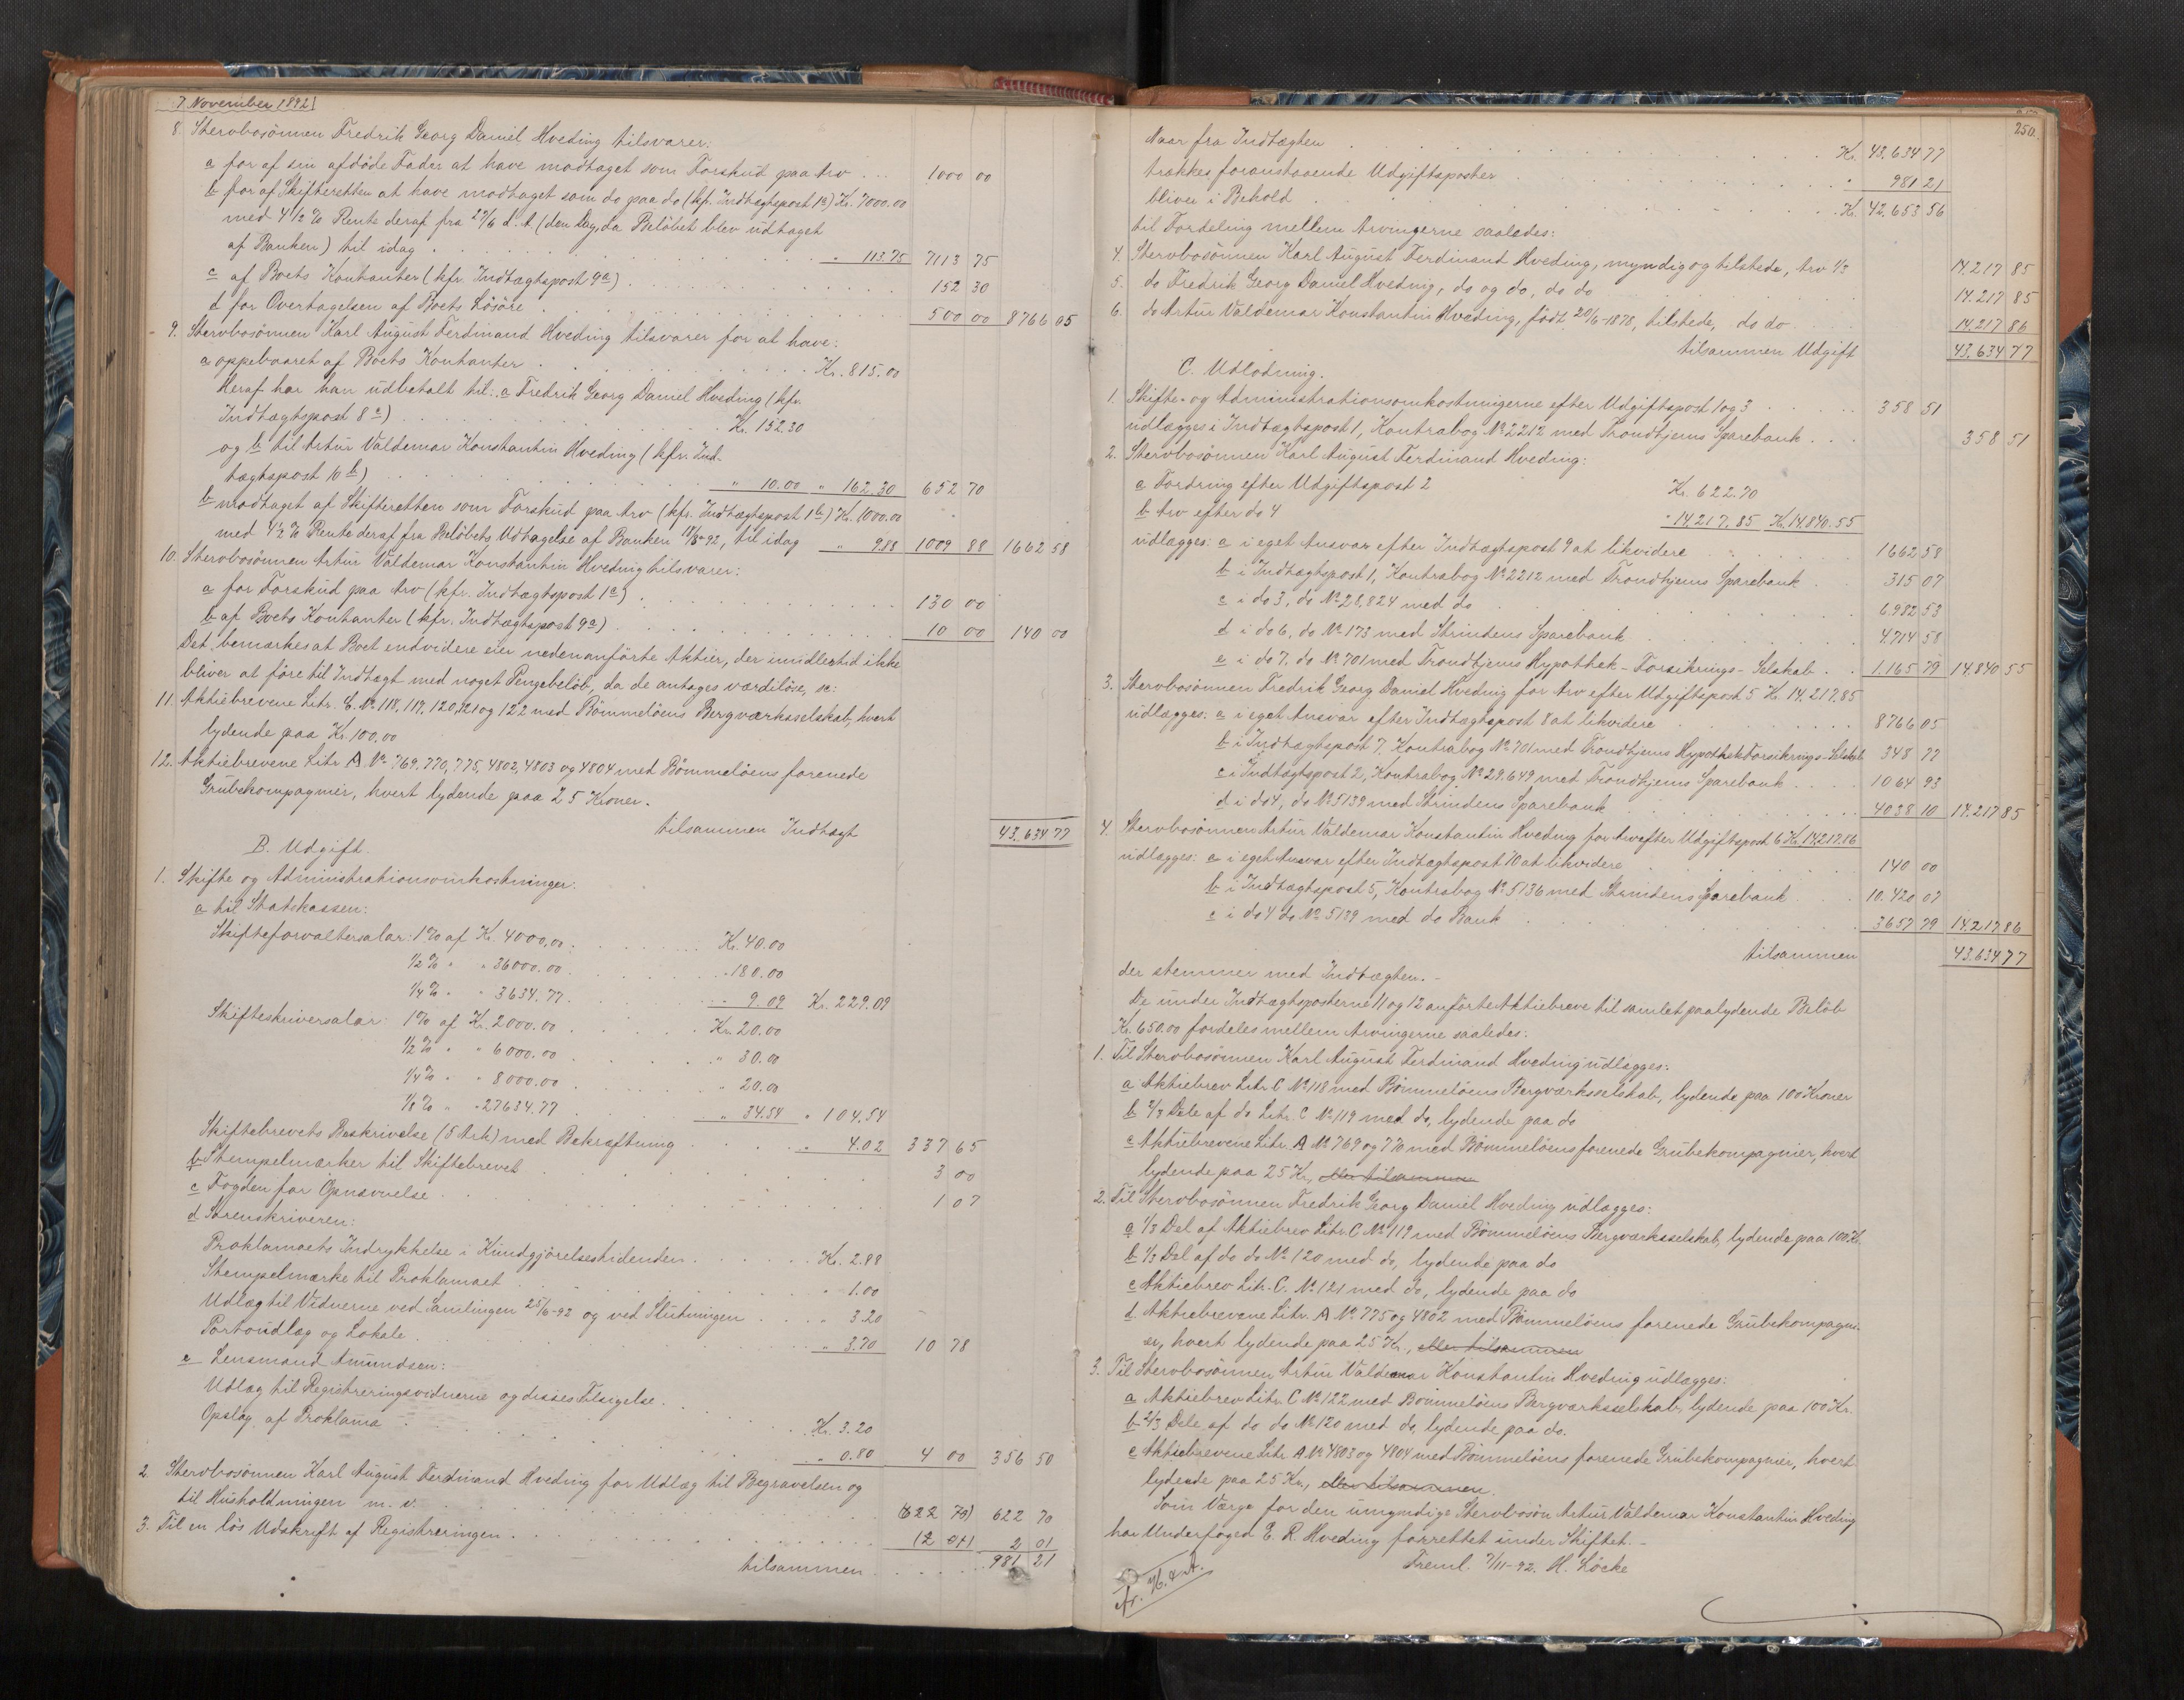 7 November 1892
8. Stervbosönnen Fredrik Georg Daniel Hveding tilsvarer:
a for af sin afdöde Fader at have modtaget som Forskud paa Arv . . . 1000 00
b for af Skifteretten at have modtaget som do paa do (kfr. Indtægtspost 1a) Kr. 7000.00
med 4 1/2 % Rente deraf fra 29/6 d. A. (den Dag, da Beløbet blev udtaget
af Banken) til idag . . . " 113.75 7113 75
c af Boets Kontanter (kfr. Indtægtspost 9a) . . . 152 30
d for Overtagelsen af Boets Lösöre . . . 500 00 8766 05
9. Stervbosönnen Karl August Ferdinand Hveding tilsvarer for at have:
a oppebaaret af Boets Kontanter . . . Kr. 815.00
Heraf har han udbetalt til: a Fredrik Georg Daniel Hveding (kfr.
Indtægtspost 8c) . . . Kr. 152.30
og b til Artur Valdemar Konstantin Hveding (kfr. Ind-
tægtspost 10 b) . . . " 10.00 " 162.30 652 70
b modtaget af Skifteretten som Forskud paa Arv (kfr. Indtægtspost 1b) Kr. 1000.00
med 4 1/2 % Rente deraf fra Beløbets Udtagelse af Banken 18/8-92, til idag " 9.88 1009 88 1662 58
10. Stervbosönnen Artur Valdemar Konstantin Hveding tilsvarer:
a for Forskud paa Arv (kfr. Indtægtspost 1c) . . . 130 00
b af Boets Kontanter (kfr. Indtægtspost 9a) . . . 10 00 140 00
Det bemærkes at Boet endvidere eier nedenanförte Aktier, der imidlertid ikke
bliver at före til Indtægt med noget Pengebelöb, da de antages værdilöse, sc:
11. Aktiebrevene Litr. C. No 118, 119, 120, 121 og 122 med Bömmelöens Bergværksselskab, hvert
lydende paa Kr. 100.00
12. Aktiebrevene Litr A No 769, 770, 775, 4802, 4803 og 4804 med Bömmelöens forenede
Grubekompagnier, hvert lydende paa 25 Kroner.
tilsammen Indtægt 43,634 77
B. Udgift.
1. Skifte og Administrationsomkostninger:
a til Statskassen:
Skifteforvaltersalar: 1% af Kr. 4000.00 . . . Kr. 40.00
1/2 % " " 36000.00 . . . " 180.00
1/4 % " " 3634.77 . . . " 9.09 Kr. 229.09
Skifteskriversalar: 1% af Kr. 2000.00 . . . Kr. 20.00
1/2 % " " 6000.00 . . . " 30.00
1/4 % " " 8000.00 . . . " 20.00
1/8 % " " 27634.77 . . . " 34.54 " 104.54
Skiftebrevets Beskrivelse (5 Ark) med Bekræftning . . . " 4.02 337 65
b Stempelmærker til Skiftebrevet . . . 3 00
c Fogden for Opnævnelse . . . 1 07
d Sorenskriveren:
Proklamaets Indrykkelse i Kundgjörelsestidenden . . . Kr. 2.88
Stempelmærke til Proklamaet . . . " 1.00
Udlæg til Vidnerne ved Samlingen 25/6-92 og ved Slutningen . . . " 3.20
Portoudlæg og Lokale . . . " 3.70 10 78
e Lensmand Amundsen:
Udlæg til Registreringsvidnerne og disses Tilsigelse . . . Kr. 3.20
Opslag af Proklama . . . " 0.80 4 00 356 50
2. Stervbosönnen Karl August Ferdinand Hveding for Udlæg til Begravelsen og
til Husholdningen m. v. . . . (622 70) 622 70
3. Til en lös Udskrift af Registreringen . . . (2 01) 2 01
tilsammen . . . 981 21
250.
Naar fra Indtægten . . . Kr. 43.634 77
trækkes foranstaaende Udgiftsposter . . . " 981 21
bliver i Behold . . . Kr. 42.653 56
til Fordeling mellem Arvingerne saaledes:
4. Stervbosönnen Karl August Ferdinand Hveding, myndig og tilstede, Arv 1/3 14.217 85
5. do Fredrik Georg Daniel Hveding, do og do, do do . . . 14.217 85
6. do Artur Valdemar Konstantin Hveding, födt 20/6-1878, tilstede, do do . . . 14.217 86
tilsammen Udgift 43.634 77
C. Udlodning.
1. Skifte- og Administrationsomkostningerne efter Udgiftspost 1 og 3 . . . 358 51
udlægges i Indtægtspost 1, Kontrabog No 2212 med Trondhjems Sparebank . . . 358 51
2. Stervbosönnen Karl August Ferdinand Hveding:
a Fordring efter Udgiftspost 2 Kr. 622.70
b Arv efter do 4 " 14.217.85 Kr. 14.840.55
udlægges: a i eget Ansvar efter Indtægtspost 9 at likvidere . . . 1662 58
b i Indtægtspost 1, Kontrabog No 2212 med Trondhjems Sparebank . . . 315 07
c i do 3, do No 28,824 med do . . . 6982 53
d i do 6, do No 173 med Strindens Sparebank . . . 4714 58
e i do 7, do No 701 med Trondhjems Hypothek-Forsikrings-Selskab . . . 1.165 79 14.840 55
3. Stervbosönnen Fredrik Georg Daniel Hveding for Arv efter Udgiftspost 5 Kr. 14.217.85
udlægges: a i eget Ansvar efter Indtægtspost 8 at likvidere . . . 8766 05
b i Indtægtspost 7, Kontrabog No 701 med Trondhjems Hypothek Forsikrings-Selskab 348 77
c i Indtægtspost 2, Kontrabog No 29.649 med Trondhjems Sparebank . . . 1064 93
d i do 4, do No 5139 med Strindens Sparebank . . . 4038 10 14.217 85
4. Stervbosönnen Artur Valdemar Konstantin Hveding for Arv efter Udgiftspost 6 Kr. 14.217.86
udlægges: a i eget Ansvar efter Indtægtspost 10 at likvidere . . . 140 00
b i Indtægtspost 5, Kontrabog No 5136 med Strindens Sparebank . . . 10.420 07
c i do 4 do No 5139 med do Bank . . . 3657 79 14.217 86
tilsammen 43.634 77
der stemmer med Indtægten. -
De under Indtægtsposterne 11 og 12 anförte Aktiebreve til samlet paalydende Belöb
Kr. 650.00 fordeles mellem Arvingerne saaledes:
1. Til Stervbosönnen Karl August Ferdinand Hveding udlægges:
a Aktiebrev Litr. C No 118 med Bömmelöens Bergværksselskab, lydende paa 100 Kroner
b 2/3 Dele af do Litr. C No 119 med do, lydende paa do
c Aktiebrevene Litr. A No 769 og 770 med Bömmelöens forenede Grubekompagnier, hvert
lydende paa 25 Kr., eller tilsammen
2. Til Stervbosönnen Fredrik Georg Daniel Hveding udlægges:
a 1/3 Del af Aktiebrev Litr. C No 119 med Bömmelöens Bergværksselskab, lydende paa 100 Kr.
b 1/3 Del af do do No 120 med do, lydende paa do
c Aktiebrev Litr. C. No 121 med do, lydende paa do
d Aktiebrevene Litr. A No 775 og 4802 med Bömmelöens forenede Grubekompagni-
er, hvert lydende paa 25 Kr., eller tilsammen
3. Til Stervbosönnen Artur Valdemar Konstantin Hveding udlægges:
a Aktiebrev Litr. C No 122 med Bömmelöens Bergværksselskab, lydende paa 100 Kr.
b 2/3 Dele af do do No 120 med do, lydende paa do.
c Aktiebrevene Litr A. No 4803 og 4804 med Bömmelöens forenede Grubekompagnier, hvert
lydende paa 25 Kr., eller tilsammen.
Som Værge for den umyndige Stervbosön Artur Valdemar Konstantin Hveding
har Underfoged E. R. Hveding forrettet under Skiftet. -
Freml. 7/11-92. H. Löcke